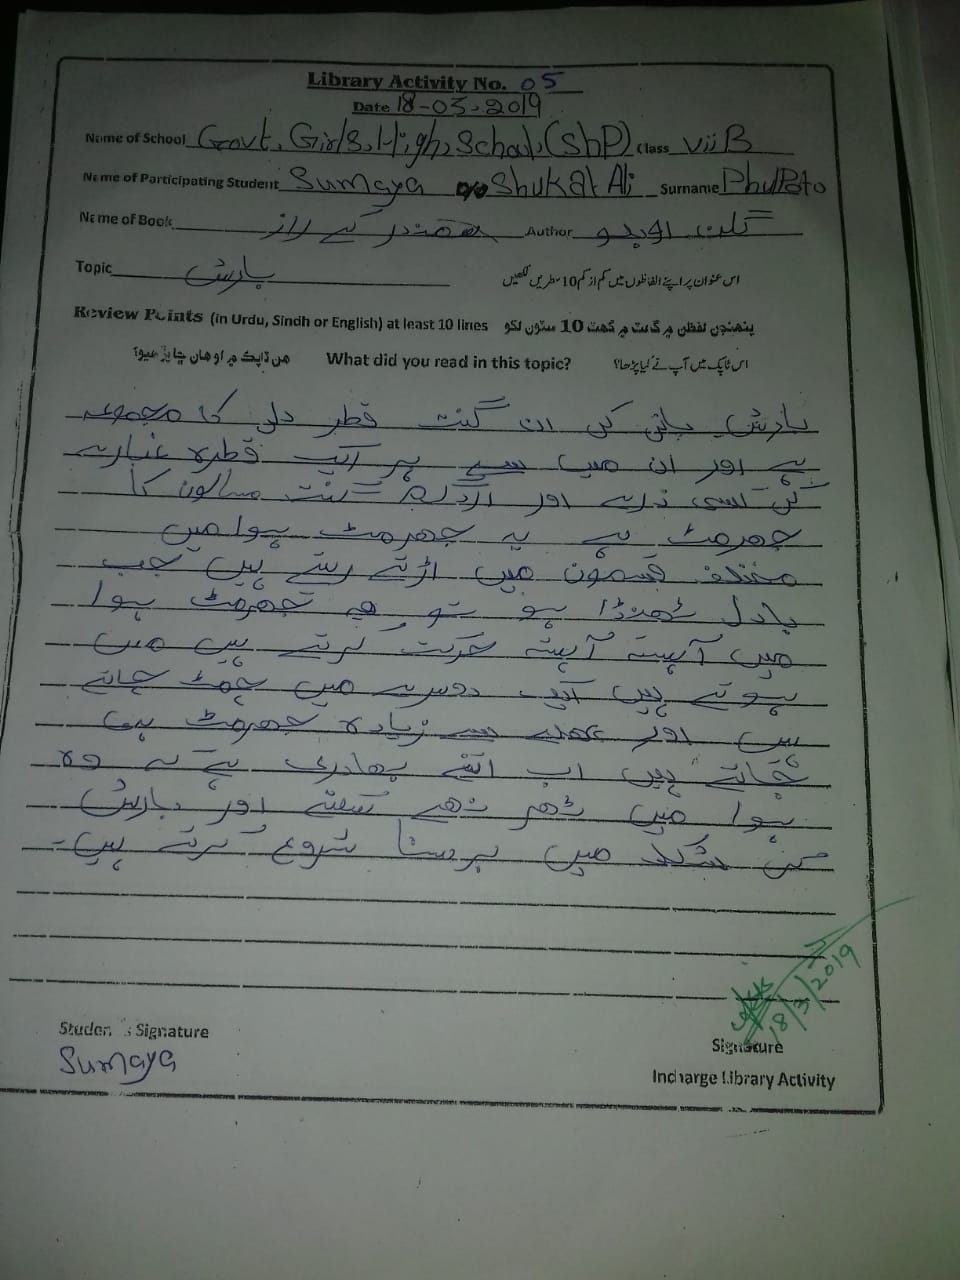 Library Activity No. 05
Date 18-03-2019
Name of School Govt. Girls. High. School. (ShP) Class viiB
Name of Participating Student Sumaya D/o Shukat Ali Surname Phulpoto
Name of Book سمندر کے راز Author
Topic بارش اس عنوان پر اپنے الفاظوں میں کم از کم 10 سطریں لکھیں
Review Points (in Urdu, Sindh or English) at least 10 lines پنهنجن لفظن ۾ گهٽ ۾ گهٽ 10 سٽون لکو
هن ٽاپڪ ۾ اوهان ڇا پڙهيو؟ What did you read in this topic? اس ٹاپک میں آپ نے کیا پڑھا؟
بارش پانی کی ان گنت قطر دلی کا مجموعہ
ہے اور ان میں سے ہر ایک قطرہ غبارے
کی اسی ذرے اور گنت سالون کا
جھرمٹ ہے یہ جھرمٹ ہوا میں
مختلف قسمون میں اڑتے رہتے ہیں جب
بادل ٹھنڈا ہو تو یہ جھرمٹ ہوا
میں آہستہ آہستہ حرکت کرتے ہیں میں
ہوتے ہیں ایک دوسرے میں چمٹ جاتے
ہیں اور سے زیادہ جھرمٹ ہی
جاتے ہیں اب اتنے بھادری ہے یہ وہ
ہوا میں اور بارش
کی شکل میں برسنا شروع کرتے ہیں۔
18/3/2019
Student's Signature
Sumaya
Signature
Incharge Library Activity